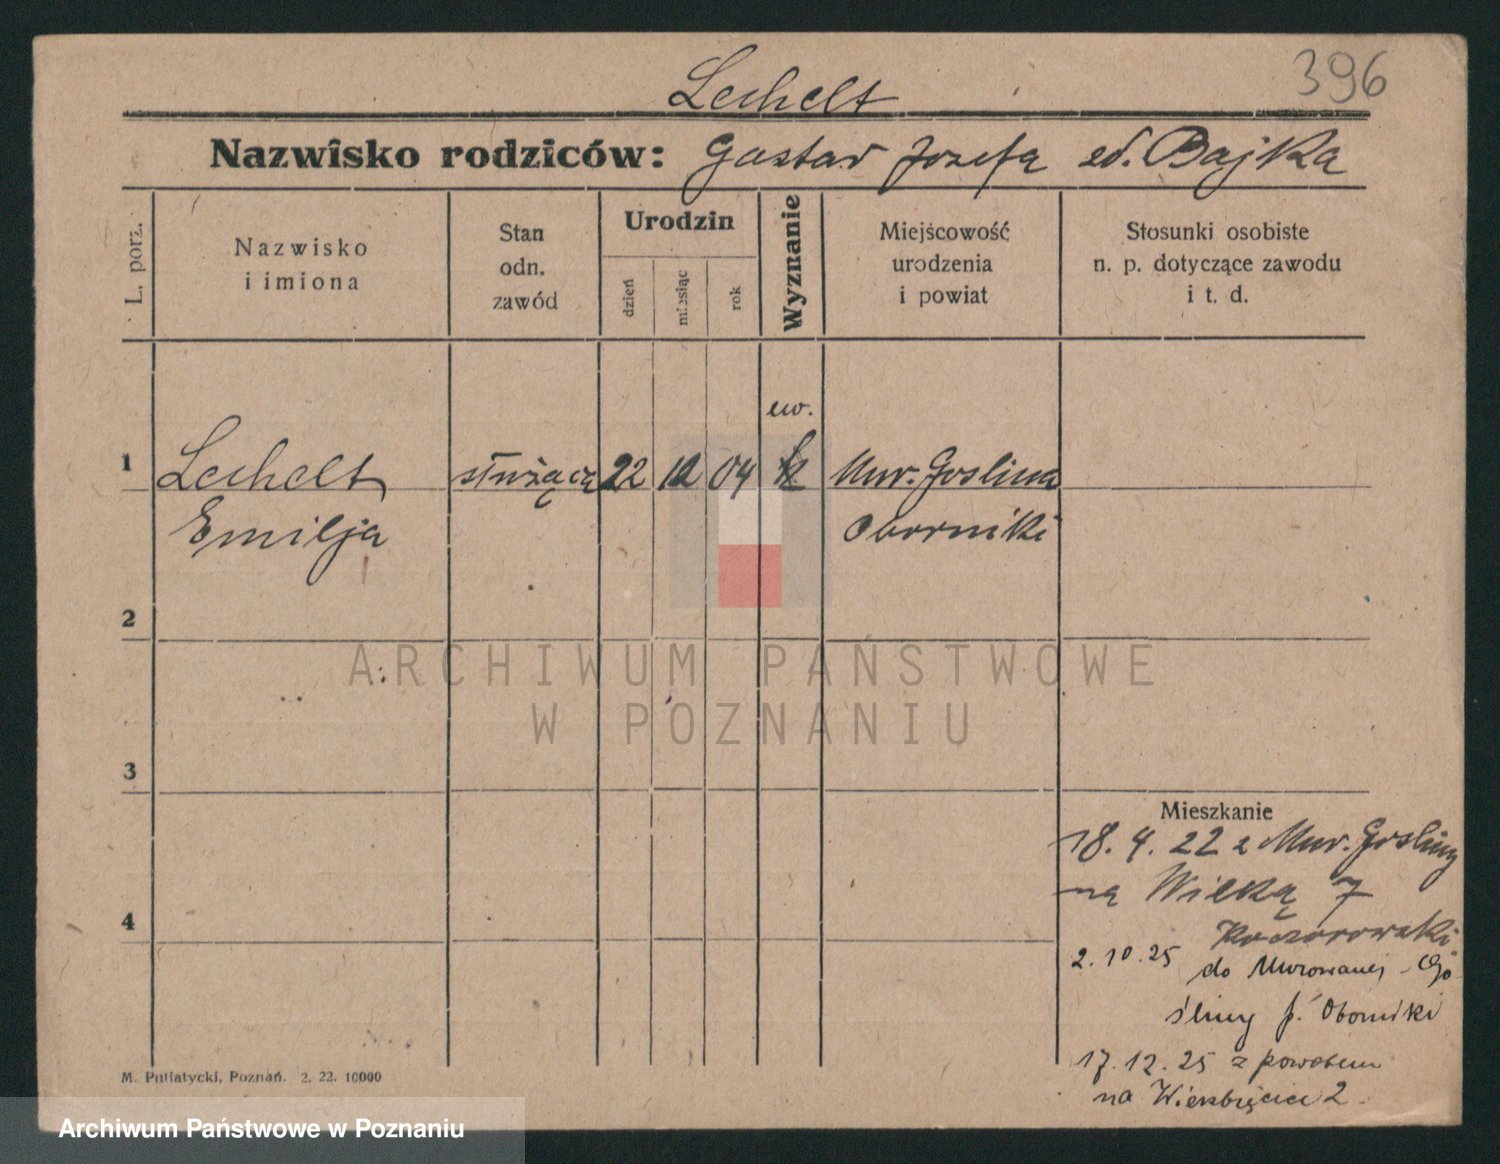 396
Lechelt
Nazwisko rodziców: Gustav Józefa Bajka
L. porz.
Nazwisko
i imiona
Stan
odn.
zawód
Urodzin
dzień
miesiąc
rok
Wyznanie
Miejscowość
urodzenia
i powiat
Stosunki osobiste
n. p. dotyczące zawodu
i t. d.
ew.
1 Lechelt służąca 22 12 04 k Mur. Goslina
Emilja Oborniki
2
ARCHIWUM PAŃSTWOWE
W POZNANIU
3
4
Mieszkanie
18.4.22 z Mur. Gosliny
na Wielką 7
Koczorowski
2.10.25 do Murowanej-Go
śliny p. Oborniki
17.12.25 z powrotem
na Wierzbięcice 2
M. Putiatycki, Poznań. 2. 22. 10000
Archiwum Państwowe w Poznaniu